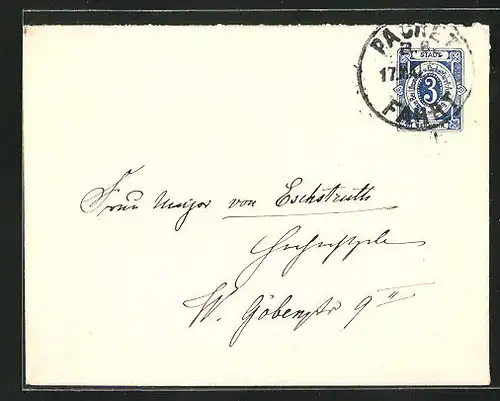 PACKET
STADT
17.
3
FAHRT
Frau Major von Eschstruth
W. Göbenstr 9 II